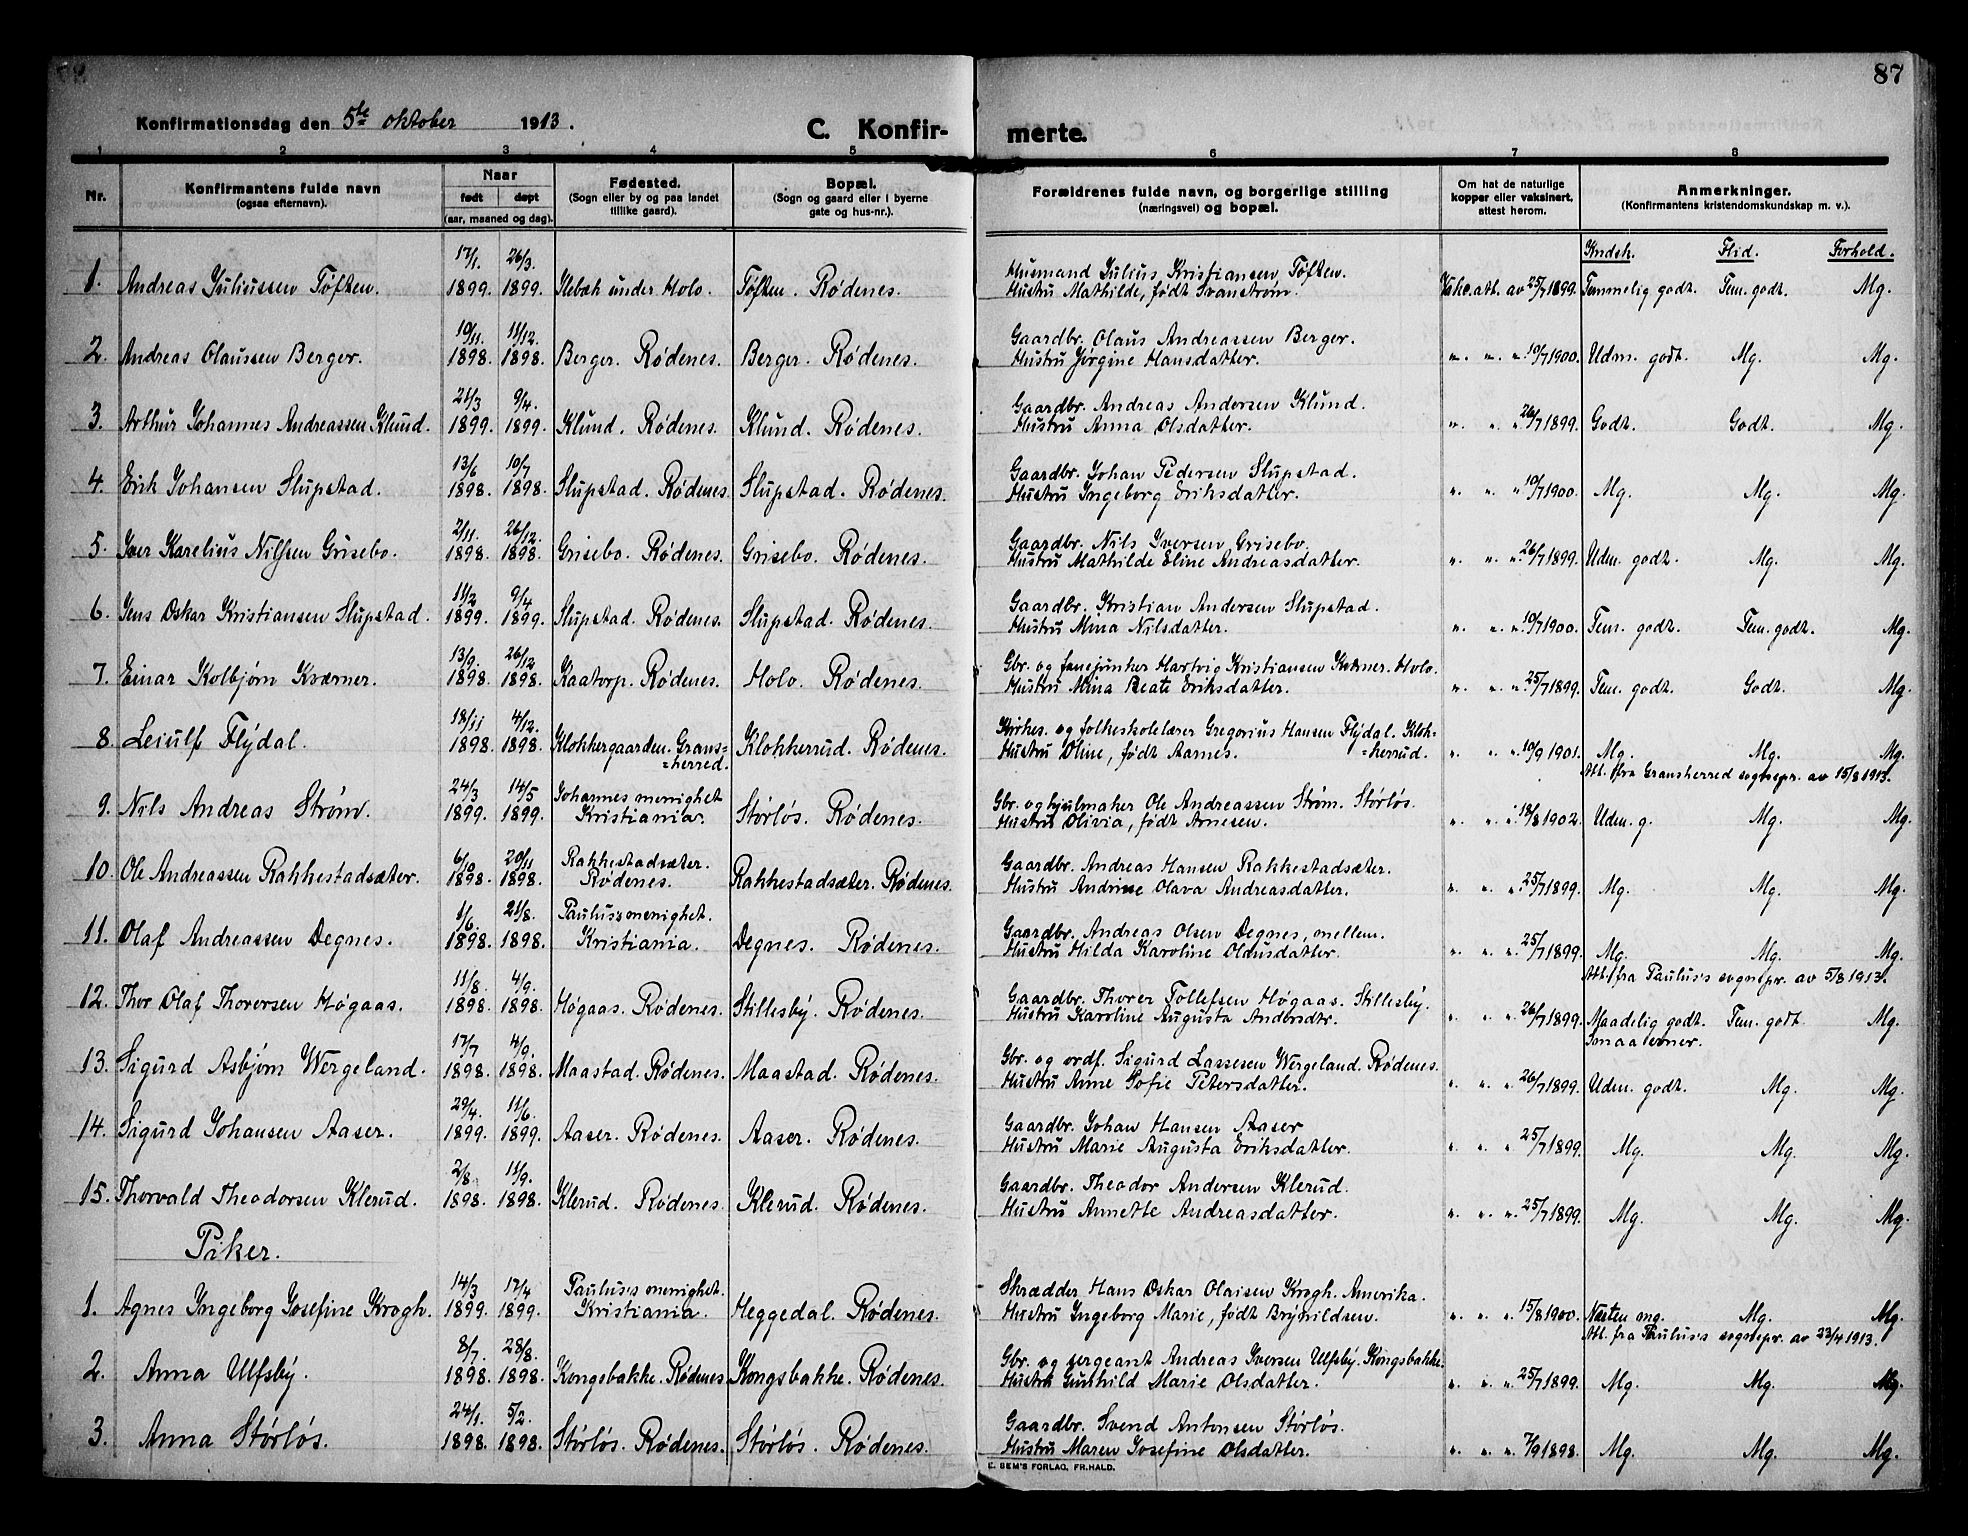 87
Konfirmationsdag den 5te oktober 1913.
C. Konfirmerte.
1 2 3 4 5 6 7 8
Nr. Konfirmantens fulde navn (ogsaa efternavn). Naar født døpt (aar, maaned og dag). Fødested. (Sogn eller by og paa landet tillike gaard). Bopæl. (Sogn og gaard eller i byerne gate og hus-nr.). Forældrenes fulde navn, og borgerlige stilling (næringsvei) og bopæl. Om hat de naturlige kopper eller vaksinert, attest herom. Anmerkninger. (Konfirmantens kristendomskundskap m. v.).
Kndsk. Flid. Forhold.
1. Andreas Juliussen Tøften. 17/1. 1899. 26/3. 1899. Ilebæk under Holo. Tøften. Rødenes. Husmand Julius Kristiansen Tøften. Hustru Mathilde, født Svanstrøm. Vakc.att. av 25/7 1899. Temmelig godt. Tem. godt. Mg.
2. Andreas Olaussen Berger. 10/11. 1898. 11/12. 1898. Berger. Rødenes. Berger. Rødenes. Gaardbr. Olaus Andreassen Berger. Hustru Jørgine Hansdatter. " " " 10/7 1900. Udm. godt. Mg. Mg.
3. Arthur Johannes Andreassen Klund. 21/3 1899. 9/4. 1899. Klund. Rødenes. Klund. Rødenes. Gaardbr. Andreas Andersen Klund. Hustru Anna Olsdatter. " " " 26/7 1899. Godt. Godt. Mg.
4. Erik Johansen Slupstad. 13/6 1898. 10/7 1898. Slupstad. Rødenes. Slupstad. Rødenes. Gaardbr. Johan Pedersen Slupstad. Hustru Ingeborg Eriksdatter. " " " 10/7 1900. Mg. Mg. Mg.
5. Iver Karelius Nilssen Grisebo. 2/11. 1898. 26/12. 1898. Grisebo. Rødenes. Grisebo. Rødenes. Gaardbr. Nils Iversen Grisebo. Hustru Mathilde Eline Andreasdatter. " " " 26/7 1899. Udm. godt. Mg. Mg.
6. Jens Oskar Kristiansen Slupstad. 11/2 1899. 9/4 1899. Slupstad. Rødenes. Slupstad. Rødenes. Gaardbr. Kristian Andersen Slupstad. Hustru Mina Nilsdatter. " " " 10/7 1900. Tem. godt. Tem. godt. Mg.
7. Einar Kolbjørn Kværner. 13/9. 1898. 26/12 1898. Kaatorp. Rødenes. Holo. Rødenes. Gbr. og fanejunker Hartvig Kristiansen Kværner. Holo. Hustru Mina Beate Eriksdatter. " " " 25/7 1899. Tem. godt. Godt. Mg.
8. Leiulf Flydal. 18/11 1898. 4/12. 1898. Klokkergaarden. Grans=herred. Klokkerud. Rødenes. Kirkes. og folkeskolelærer Gregorius Hansen Flydal. Klok=kerrud. Hustru Oline, født Aarnes. " " " 10/9 1901. Mg. Mg. Mg.
Att. fra Gransherred sognepr. av 15/8 1913.
9. Nils Andreas Strøm. 24/3 1899. 14/5 1899. Johannes menighet Kristiania. Størløs. Rødenes. Gbr. og hjulmaker Ole Andreassen Strøm. Størløs. Hustru Olivia, født Arnesen. " " " 18/8 1902. Udm. g. Mg. Mg.
10. Ole Andreassen Rakkestadsæter. 6/10 1898. 20/11 1898. Rakkestadsæter. Rødenes. Rakkestadsæter. Rødenes. Gaardbr. Andreas Hansen Rakkestadsæter. Hustru Andrine Olava Andreasdatter. " " " 25/7 1899. Mg. Mg. Mg.
11. Olaf Andreassen Degnes. 1/6. 1898. 21/8. 1898. Paulus's menighet. Kristiania. Degnes. Rødenes. Gaardbr. Andreas Olsen Degnes, mellem. Hustru Hilda Karoline Olausdatter. " " " 25/7 1899. Mg. Mg. Mg.
Att. fra Paulus's sognepr. av 5/8 1913.
12. Thor Olaf Thorersen Høgaas. 11/8. 1898. 4/9. 1898. Høgaas. Rødenes. Stillesby. Rødenes. Gaardbr. Thorer Tollefsen Høgaas. Stillesby. Hustru Karoline Augusta Andersdtr. " " " 26/7 1899. Maadelig godt. Tem. godt. Mg.
Smaa evner.
13. Sigurd Asbjørn Wergeland. 17/7 1898. 4/9. 1898. Maastad. Rødenes. Maastad. Rødenes. Gbr. og ordf. Sigurd Lassesen Wergeland. Rødenes. Hustru Anne Sofie Petersdatter. " " " 26/7 1899. Udm. godt. Mg. Mg.
14. Sigurd Johansen Aaser. 29/4. 1899. 11/6. 1899. Aaser. Rødenes. Aaser. Rødenes. Gaardbr. Johan Hansen Aaser Hustru Marie Augusta Eriksdatter. " " " 25/7 1899. Mg. Mg. Mg.
15. Thorvald Theodorsen Klerud. 2/8. 1898. 11/9. 1898. Klerud. Rødenes. Klerud. Rødenes. Gaardbr. Theodor Andersen Klerud. Hustru Annette Andreasdatter. " " " 25/7 1899. Mg. Mg. Mg.
Piker.
1. Agnes Ingeborg Josefine Krogh. 14/3 1899. 17/4 1899. Paulus's menighet. Kristiania. Heggedal. Rødenes. Skrædder Hans Oskar Olaisen Krogh. Amerika. Hustru Ingeborg Marie, født Brynildsen. " " " 15/8 1900. Næsten mg. Mg. Mg.
Att. fra Paulus's sognepr. av 23/4 1913.
2. Anna Ulfsby. 8/7. 1898. 28/8. 1898. Kongsbakke. Rødenes. Kongsbakke. Rødenes. Gbr. og sergeant Andreas Iversen Ulfsby. Kongsbakke. Hustru Gunhild Marie Olsdatter. " " " 25/7 1899. Mg. Mg. Mg.
3. Anna Størløs. 24/1. 1898. 5/2. 1898. Størløs. Rødenes. Størløs. Rødenes. Gaardbr. Svend Antonsen Størløs. Hustru Maren Josefine Olsdatter. " " " 7/9 1898. Mg. Mg. Mg.
E. SEM'S FORLAG, FR.HALD.